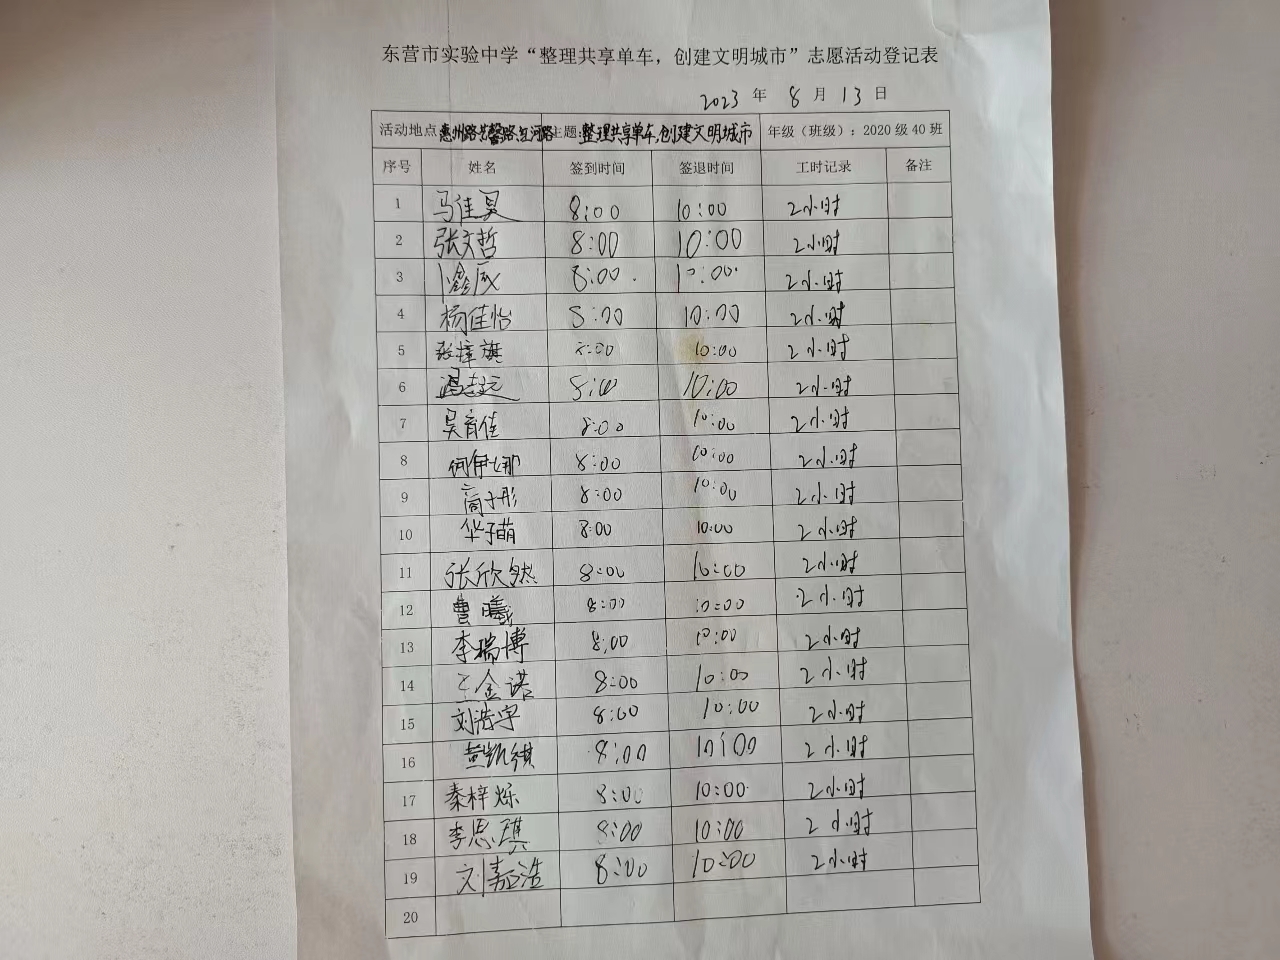 东营市实验中学“整理共享单车，创建文明城市”志愿活动登记表
2023 年 8 月 13 日
活动地点 惠州路 馨路 红河路 主题：整理共享单车，创建文明城市 年级（班级）：2020 级 40 班
序号 姓名 签到时间 签退时间 工时记录 备注
1 马佳昊 8:00 10:00 2小时
2 张文哲 8:00 10:00 2小时
3 卜鑫成 8:00. 10:00. 2小时
4 杨佳怡 8:00 10:00 2小时
5 张 旗 8:00 10:00 2小时
6 冯志远 8:00 10:00 2小时
7 吴育佳 8:00 10:00 2小时
8 何伊娜 8:00 10:00 2小时
9 高于彤 8:00 10:00 2小时
10 华子萌 8:00 10:00 2小时
11 张欣然 8:00 10:00 2小时
12 曹曦 8:00 10:00 2小时
13 李瑞博 8:00 10:00 2小时
14 王金诺 8:00 10:00 2小时
15 刘浩宇 8:00 10:00 2小时
16 凯祺 8:00 10:00 2小时
17 秦梓烁 8:00 10:00 2小时
18 李思琪 8:00 10:00 2小时
19 刘嘉浩 8:00 10:00 2小时
20